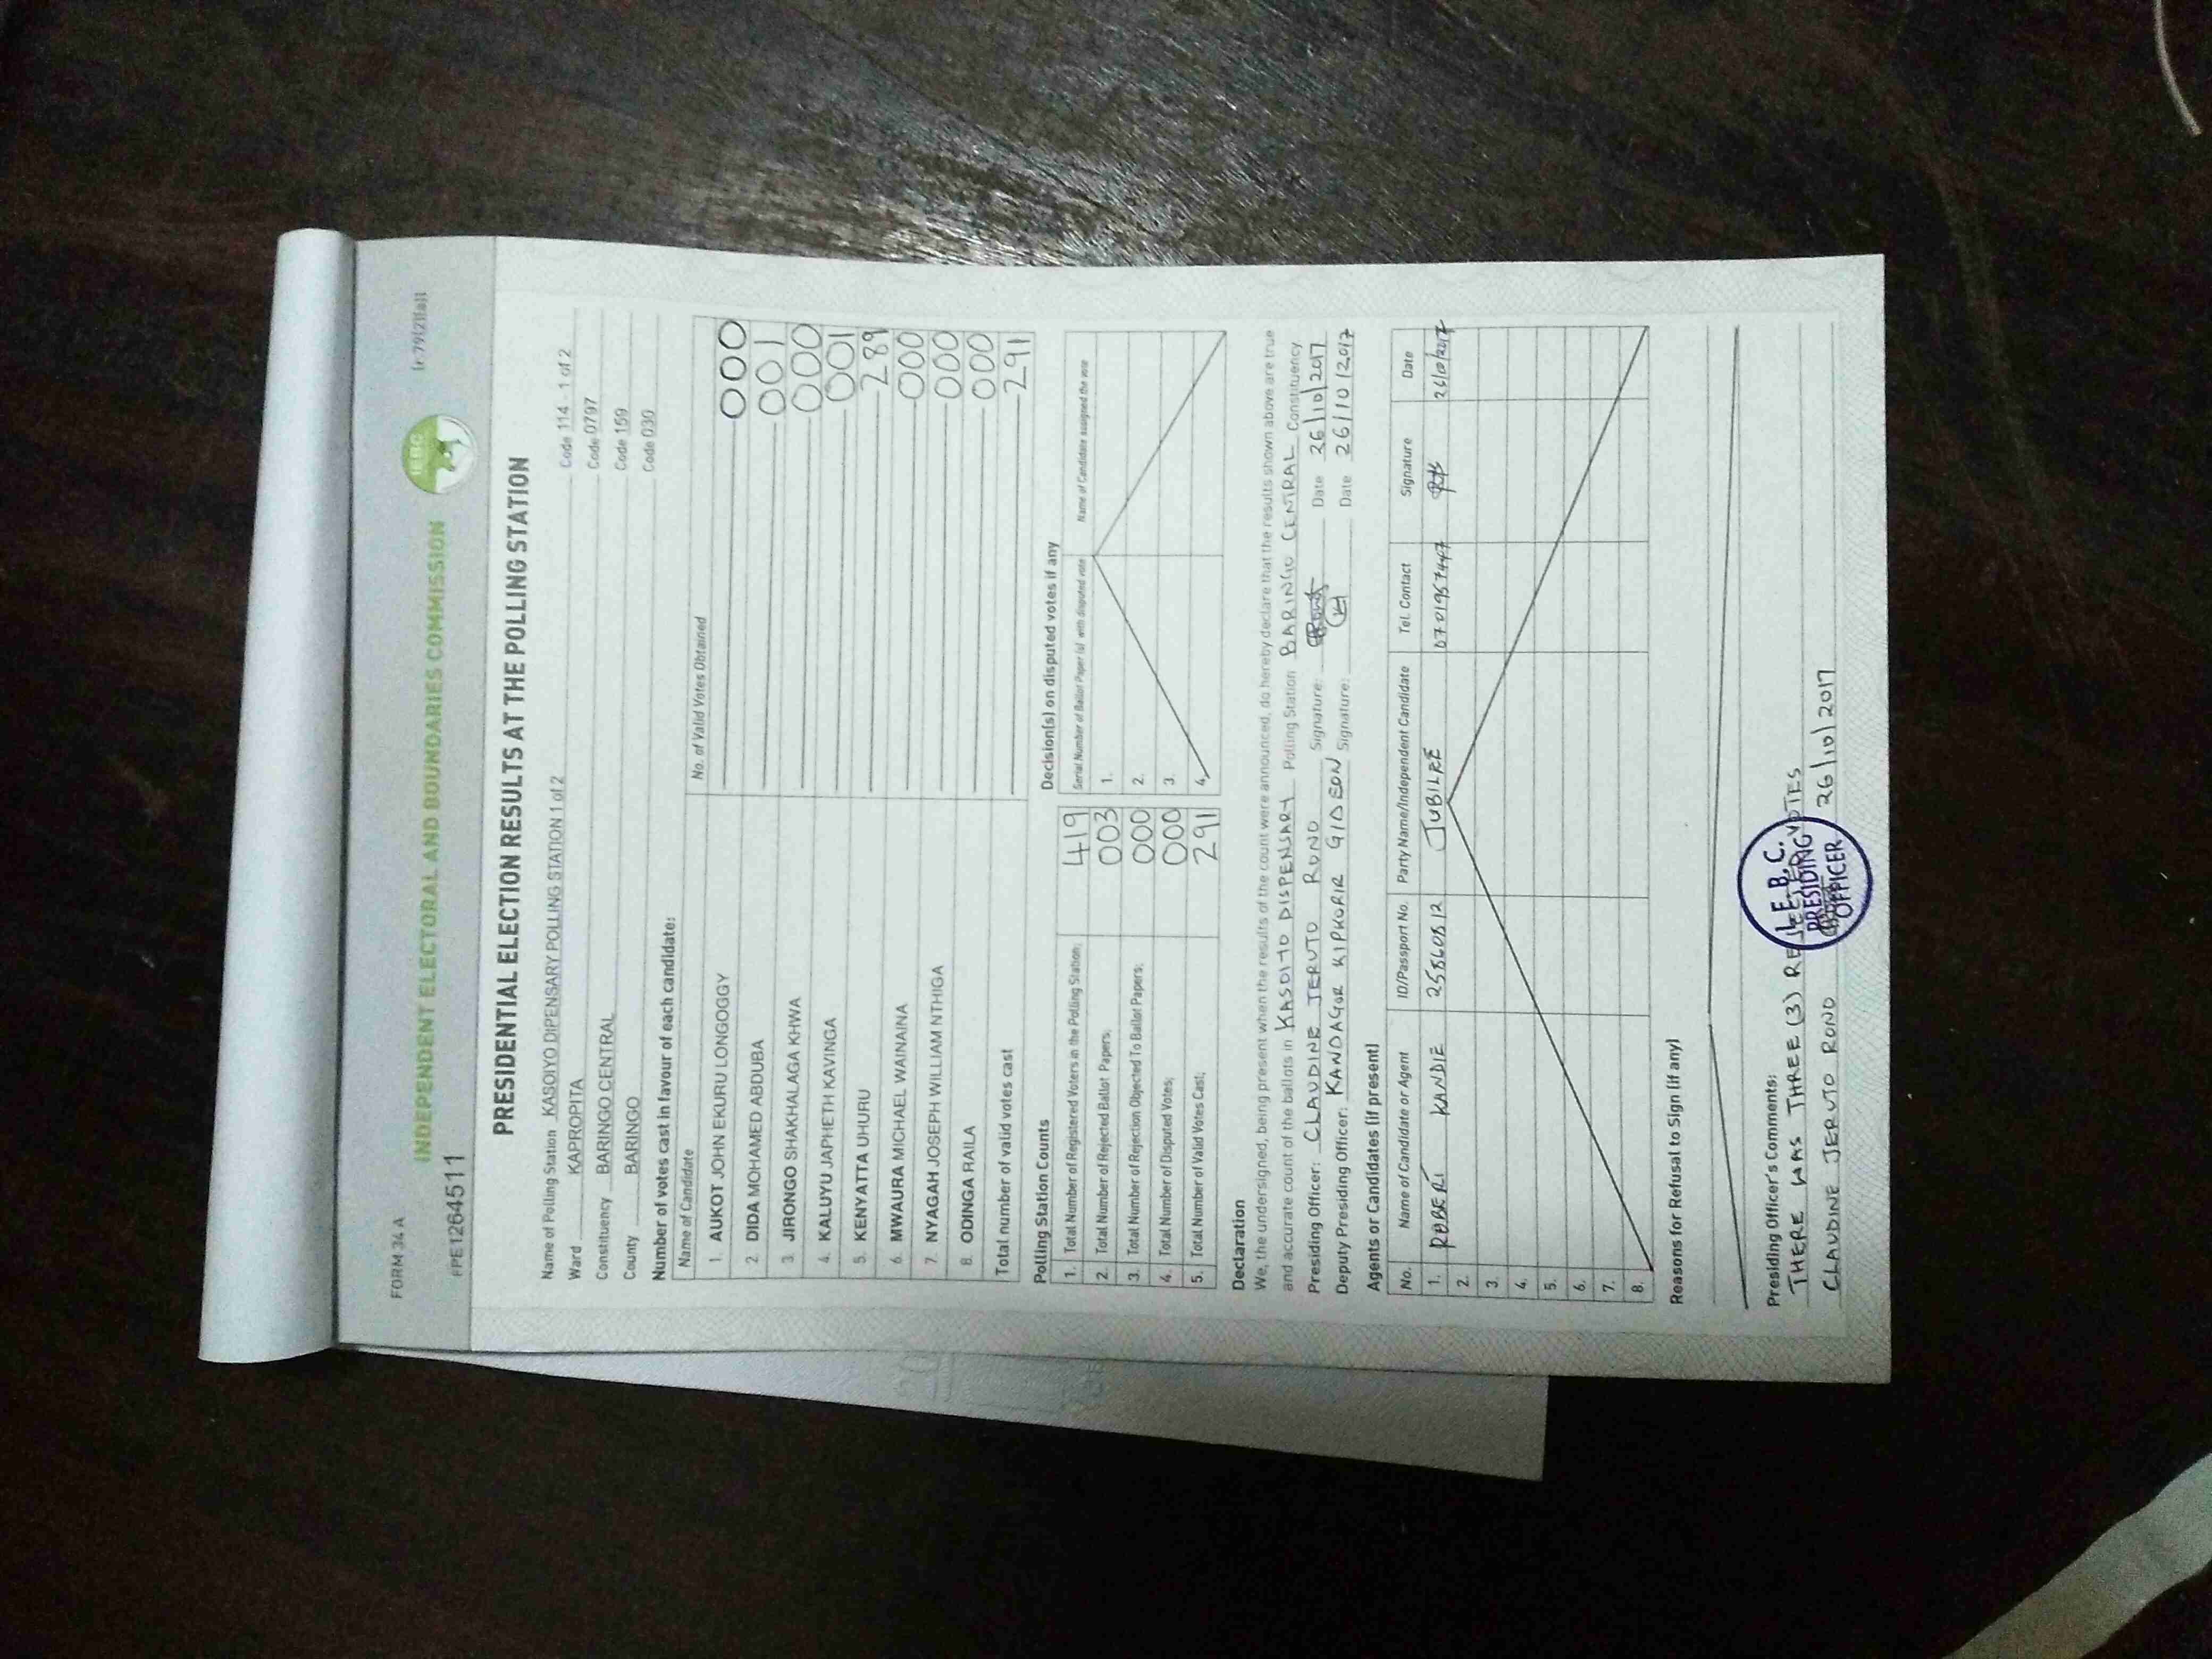 FORM 34 A
INDEPENDENT ELECTORAL AND BOUNDARIES COMMISSION
IEBC
FPE1264511
PRESIDENTIAL ELECTION RESULTS AT THE POLLING STATION
Name of Polling Station KASOIYO DIPENSARY POLLING STATION 1 of 2 Code 114 - 1 of 2
Ward KAPROPITA Code 0797
Constituency BARINGO CENTRAL Code 159
County BARINGO Code 030
Number of votes cast in favour of each candidate:
Name of Candidate No. of Valid Votes Obtained
1. AUKOT JOHN EKURU LONGOGGY 000
2. DIDA MOHAMED ABDUBA 001
3. JIRONGO SHAKHALAGA KHWA 000
4. KALUYU JAPHETH KAVINGA 001
5. KENYATTA UHURU 289
6. MWAURA MICHAEL WAINAINA 000
7. NYAGAH JOSEPH WILLIAM NTHIGA 000
8. ODINGA RAILA 000
Total number of valid votes cast 291
Polling Station Counts
1. Total Number of Registered Voters in the Polling Station; 419
2. Total Number of Rejected Ballot Papers; 003
3. Total Number of Rejection Objected To Ballot Papers; 000
4. Total Number of Disputed Votes; 000
5. Total Number of Valid Votes Cast; 291
Decision(s) on disputed votes if any
Serial Number of Ballot Paper (s) with disputed vote Name of Candidate assigned the vote
1.
2.
3.
4.
Declaration
We, the undersigned, being present when the results of the count were announced, do hereby declare that the results shown above are true
and accurate count of the ballots in KASOIYO DISPENSARY Polling Station BARINGO CENTRAL Constituency
Presiding Officer: CLAUDINE JERUTO RONO Signature: Date 26/10/2017
Deputy Presiding Officer: KANDAGOR KIPKORIR GIDEON Signature: Date 26/10/2017
Agents or Candidates (if present)
No. Name of Candidate or Agent ID/Passport No. Party Name/Independent Candidate Tel. Contact Signature Date
1. ROBERT KANDIE JUBILEE 26/10/2017
2.
3.
4.
5.
6.
7.
8.
Reasons for Refusal to Sign (if any)
Presiding Officer's Comments:
THERE WAS THREE (3) REJECTED VOTES
CLAUDINE JERUTO RONO 26/10/2017
I.E.B.C.
PRESIDING
OFFICER